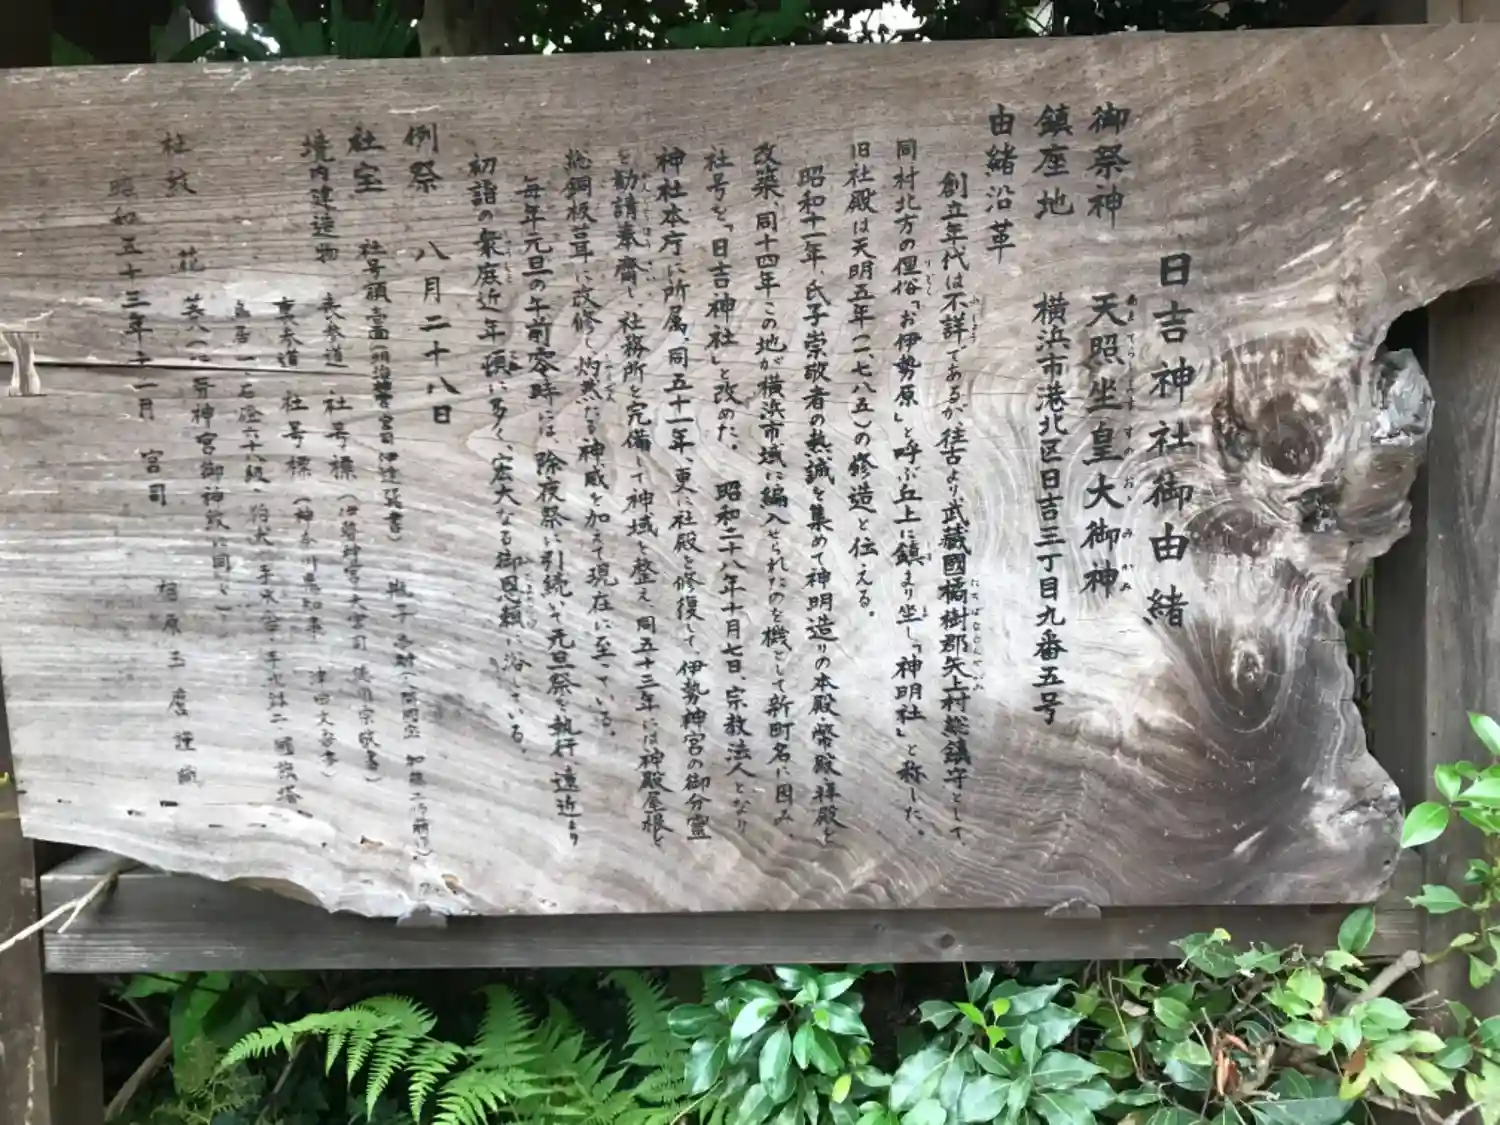 日吉神社御由緒
御祭神　天照坐皇大御神
あまてらしますすめおおみかみ
鎮座地　横浜市港北区日吉三丁目九番五号
由緒沿革
創立年代は不詳であるが往古より武蔵國橘樹郡矢上村総鎮守として
同村北方の俚俗「お伊勢原」と呼ぶ丘上に鎮まり坐し「神明社」と称した。
旧社殿は天明五年(一、七八五)の修造と伝える。
昭和十一年、氏子崇敬者の熱誠を集めて神明造りの本殿・幣殿・拝殿を
改築、同十四年この地が横浜市域に編入せられたのを機として新町名に因み、
社号を「日吉神社」と改めた。　昭和二十八年十月七日、宗教法人となり
神社本庁に所属、同五十一年、更に社殿を修復して、伊勢神宮の御分霊
を勧請奉齋し、社務所を完備して神域を整え、同五十三年には神殿屋根を
総銅板葺に改修し灼然たる神威を加えて現在に至っている。
毎年元旦の午前零時には、除夜祭に引続いて元旦祭を執行、遠近より
初詣の衆庶近年頓に多く、宏大なる御恩頼に浴している。
例祭　八月二十八日
社宝　社号額　獅子
境内建造物　表参道　社号標
裏参道　社号標　(神奈川県知事　津田文吾書)
鳥居一、石燈六十八級、狛犬
社紋　花菱
昭和五十三年十一月　宮司　相原